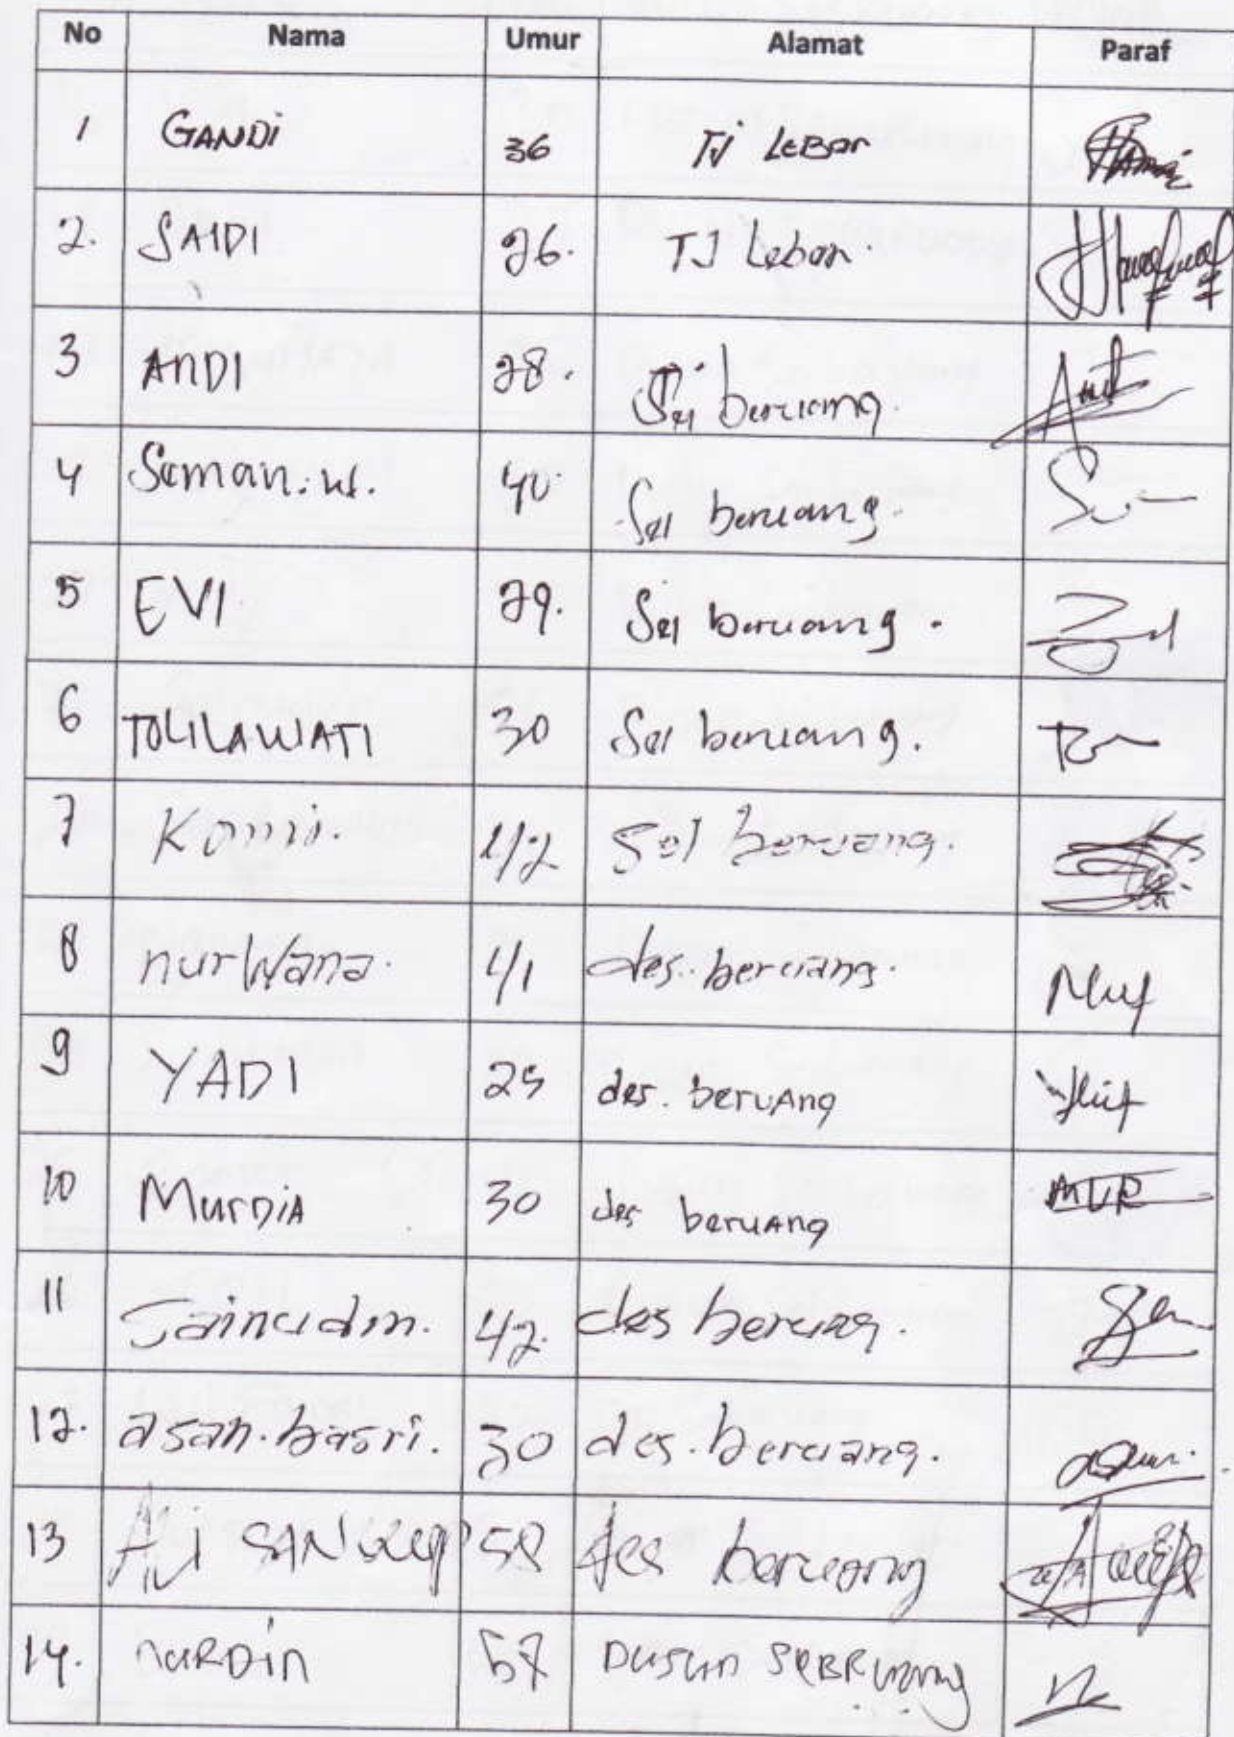 No Nama Umur Alamat Paraf
1 GANDI 36 TJ LEBAR
2. SAIDI 26. TJ Lebar.
3 ANDI 28. Sei beruang.
4 Seman.w. 40 Sei beruang.
5 EVI 29. Sei beruang.
6 TOLILAWATI 30 Sei beruang.
7 42 Sei beruang.
8 nurwana. 41 des. beruang.
9 YADI 25 des. beruAng
10 MurDiA 30 des beruAng MUR
11 Jainudin. 42. des beruang.
12. asan.basri. 30 des. beruang.
13 58 des beruang
14. nuRDin 57 Dusun